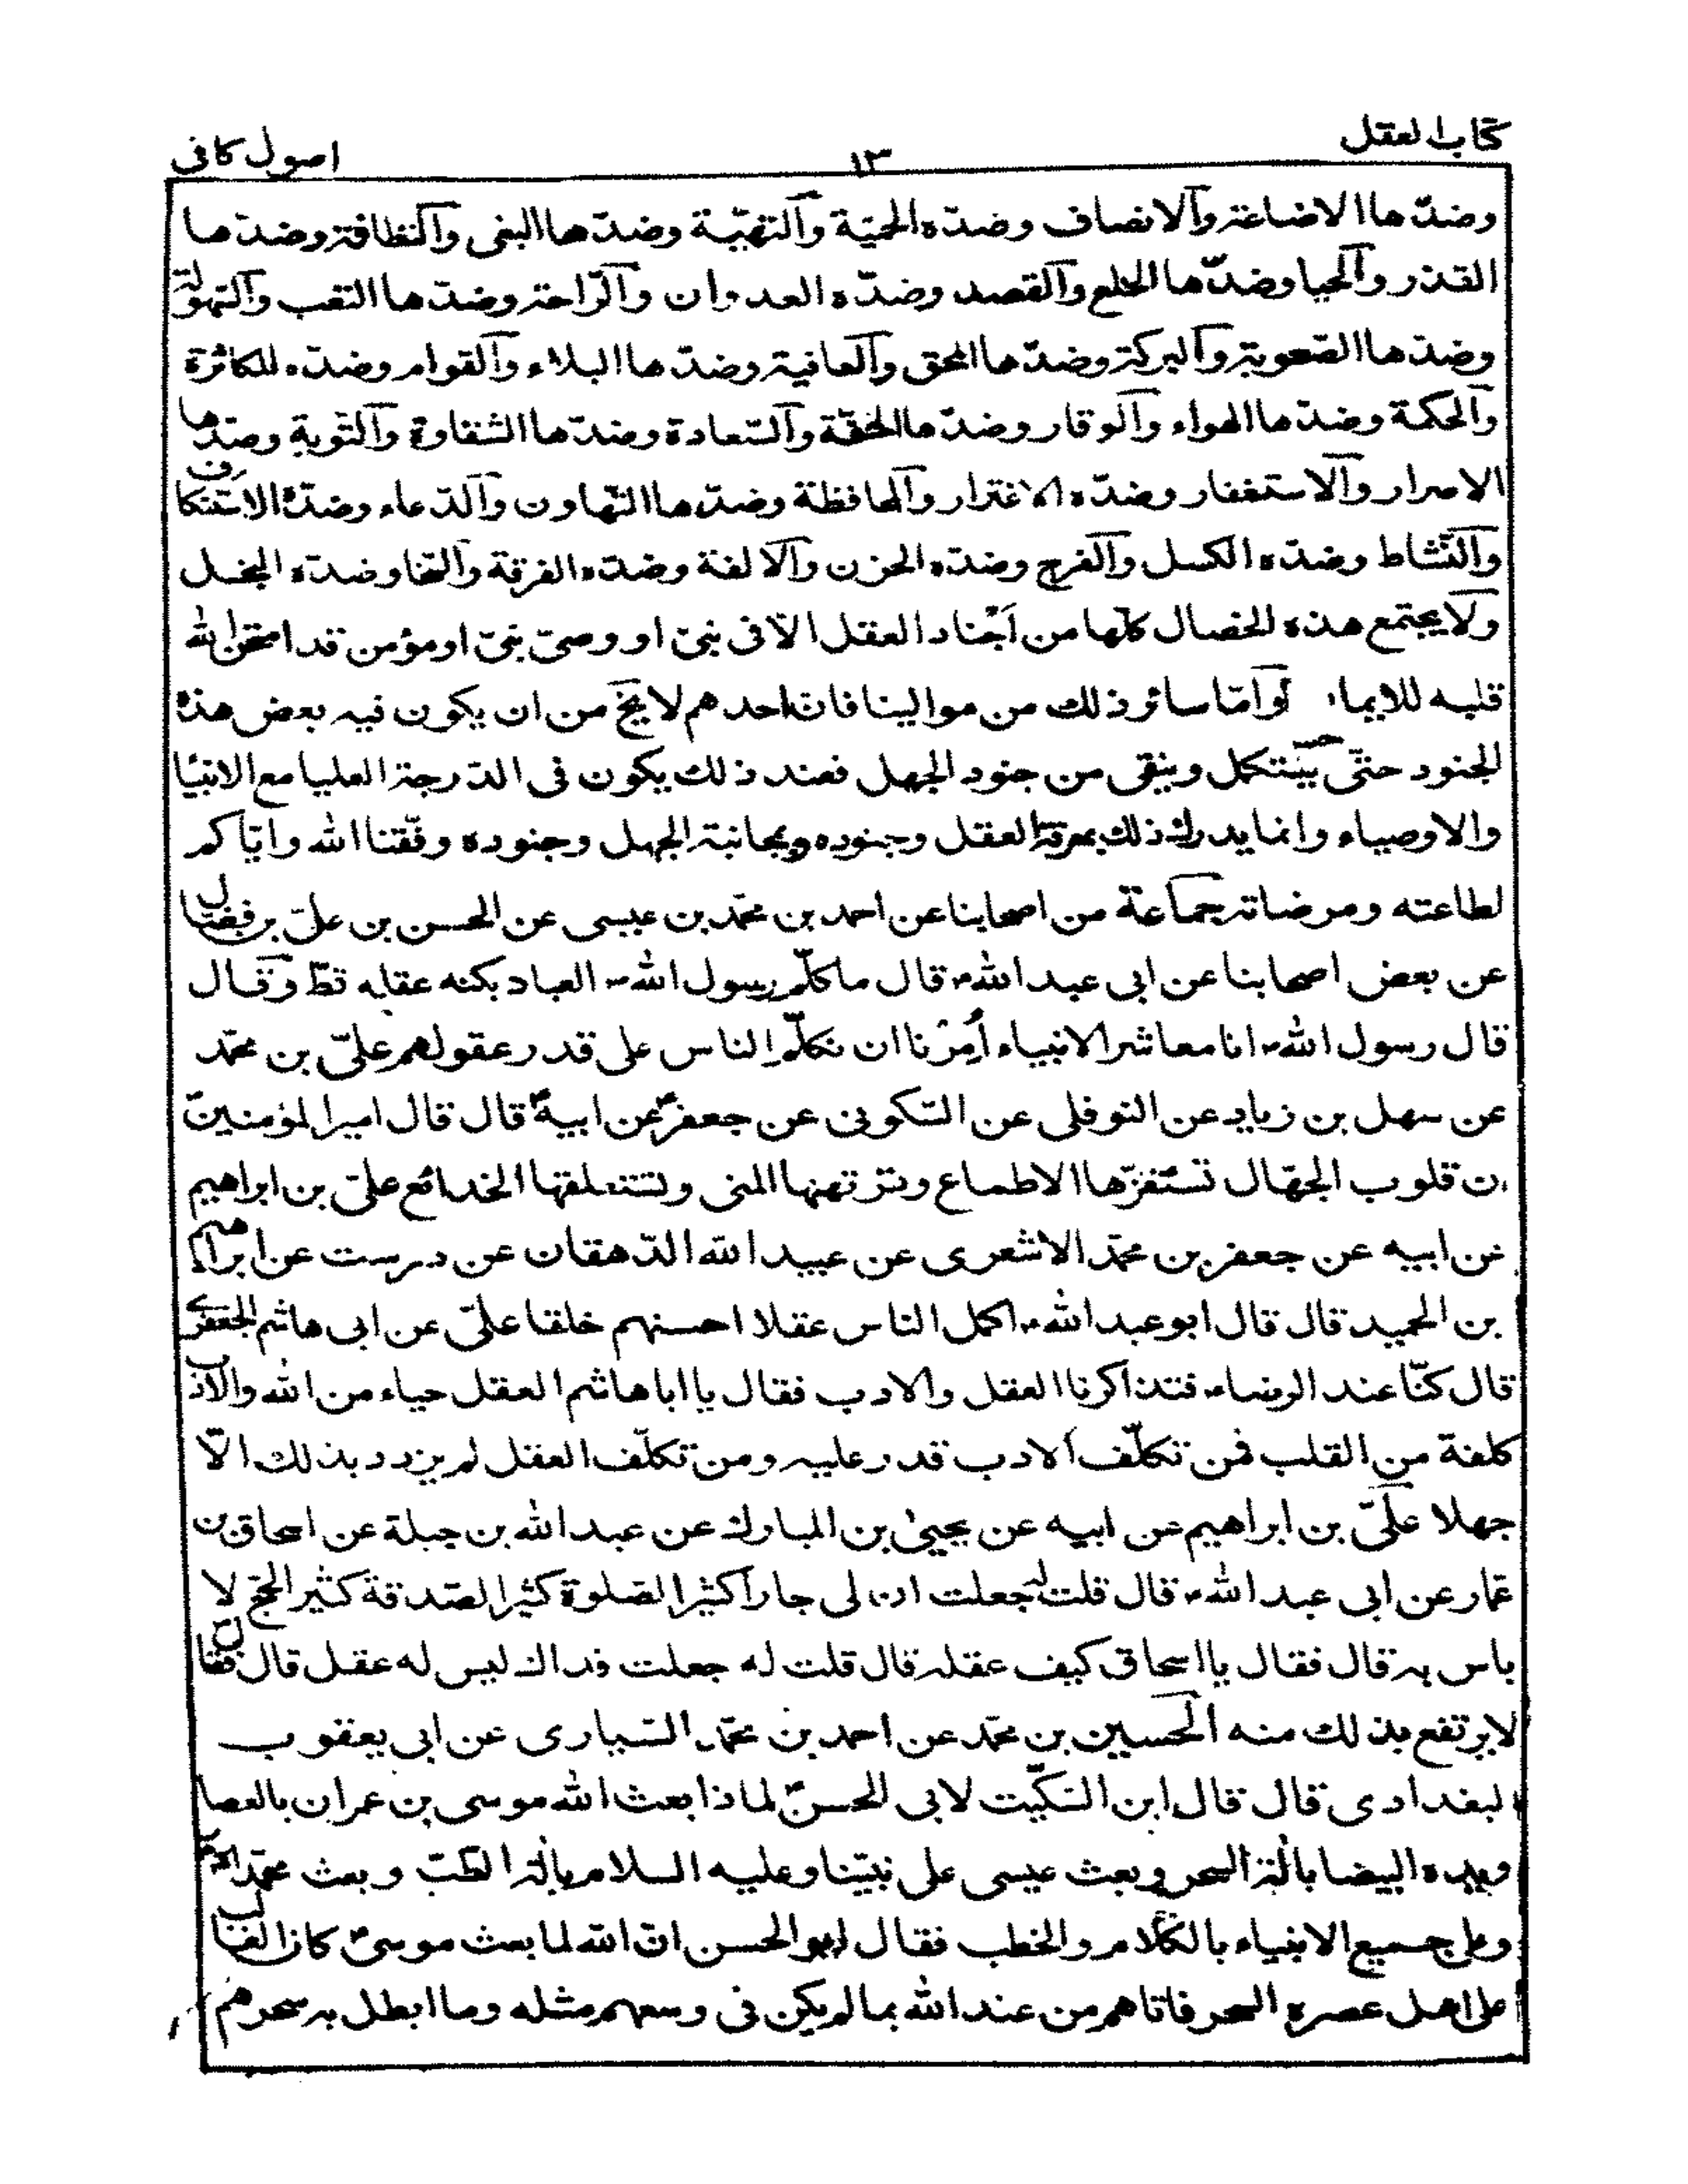 كتاب العقل
١٣
اصول كافى
وضدّها الاضاعة والانصاف وضدّه الحميّة والتهيّة وضدّها البغى والنظافة وضدّها
القذر والحيا وضدّها الخلع والقصد وضدّه العدوان والرّاحة وضدّها التعب والسهولة
وضدّها الصّعوبة والبركة وضدّها المحق والعافية وضدّها البلاء والقوام وضدّه المكاثرة
والحكمة وضدّها الهواء والوقار وضدّها الخفّة والسّعادة وضدّها الشقاوة والتّوبة وضدّها
الاصرار والاستغفار وضدّه الاغترار والمحافظة وضدّها التّهاون والدّعاء وضدّه الاستنكاف
والنّشاط وضدّه الكسل والفرح وضدّه الحزن والالفة وضدّه الفرقة والسّخا وضدّه البخل
ولا يجتمع هذه الخصال كلّها من اَجْناد العقل الّا فى نبىّ او وصىّ نبىّ او مؤمن قد امتحن الله
قلبه للايما وامّا سائر ذلك من موالينا فانّ احدهم لا يخ من ان يكون فيه بعض هذه
الجنود حتّى يستكمل وينقى من جنود الجهل فعند ذلك يكون فى الدّرجة العليا مع الانبيا
والاوصياء وانما يدرك ذلك بمعرفة العقل وجنوده وبمجانبة الجهل وجنوده وفّقنا الله وايّاكم
لطاعته ومرضاته جماعة من اصحابنا عن احمد بن محمّد بن عيسى عن الحسن بن علىّ بن فضّال
عن بعض اصحابنا عن ابى عبد الله ع قال ما كلّم رسول الله ص العباد بكنه عقله قطّ وقال
قال رسول الله ص انا معاشر الانبياء اُمِرْنا ان نكلّم الناس على قدر عقولهم علىّ بن محمّد
عن سهل بن زياد عن النوفلى عن السّكونى عن جعفرٌ عن ابيهٌ قال قال امير المؤمنينٌ
ان قلوب الجهّال تستفزّها الاطماع وترتهنها المنى وتستعلقها الخدائع علىّ بن ابراهيم
عن ابيه عن جعفر بن محمّد الاشعرى عن عبيد الله الدّهقان عن درست عن ابراهيم
بن الحميد قال قال ابو عبد الله ع اكمل الناس عقلا احسنهم خلقا علىّ عن ابى هاشم الجعفرى
قال كنّا عند الرضاء ع فتذاكرنا العقل والادب فقال يا ابا هاشم العقل حباء من الله والادب
كلفة من القلب فمن تكلّف الادب قدر عليه ومن تكلّف العقل لم يزدد بذلك الّا
جهلا علىّ بن ابراهيم عن ابيه عن يحيىٰ بن المبارك عن عبد الله بن جبلة عن اسحاق بن
عمّار عن ابى عبد الله ع قال قلت له جعلت ان لى جارا كثير الصّلوة كثير الصّدقة كثير الحجّ لا
باس به قال فقال يا اسحاق كيف عقله قال قلت له جعلت فداك ليس له عقل قال فقال
لا يرتفع بذلك منه الحسين بن محمّد عن احمد بن محمّد السّيارى عن ابى يعقوب
البغدادى قال قال ابن السّكّيت لابى الحسنٌ لماذا بعث الله موسى بن عمران بالعصا
ويده البيضا بالة السحر وبعث عيسى على نبيّنا وعليه السلام بالة الطّبّ وبعث محمّد
وعلى جميع الانبياء بالكلام والخطب فقال ابو الحسن انّ الله لما بعث موسىٌ كان الغالب
على اهل عصره السحر فاتاهم من عند الله بما لم يكن فى وسعهم مثله وما ابطل به سحرهم